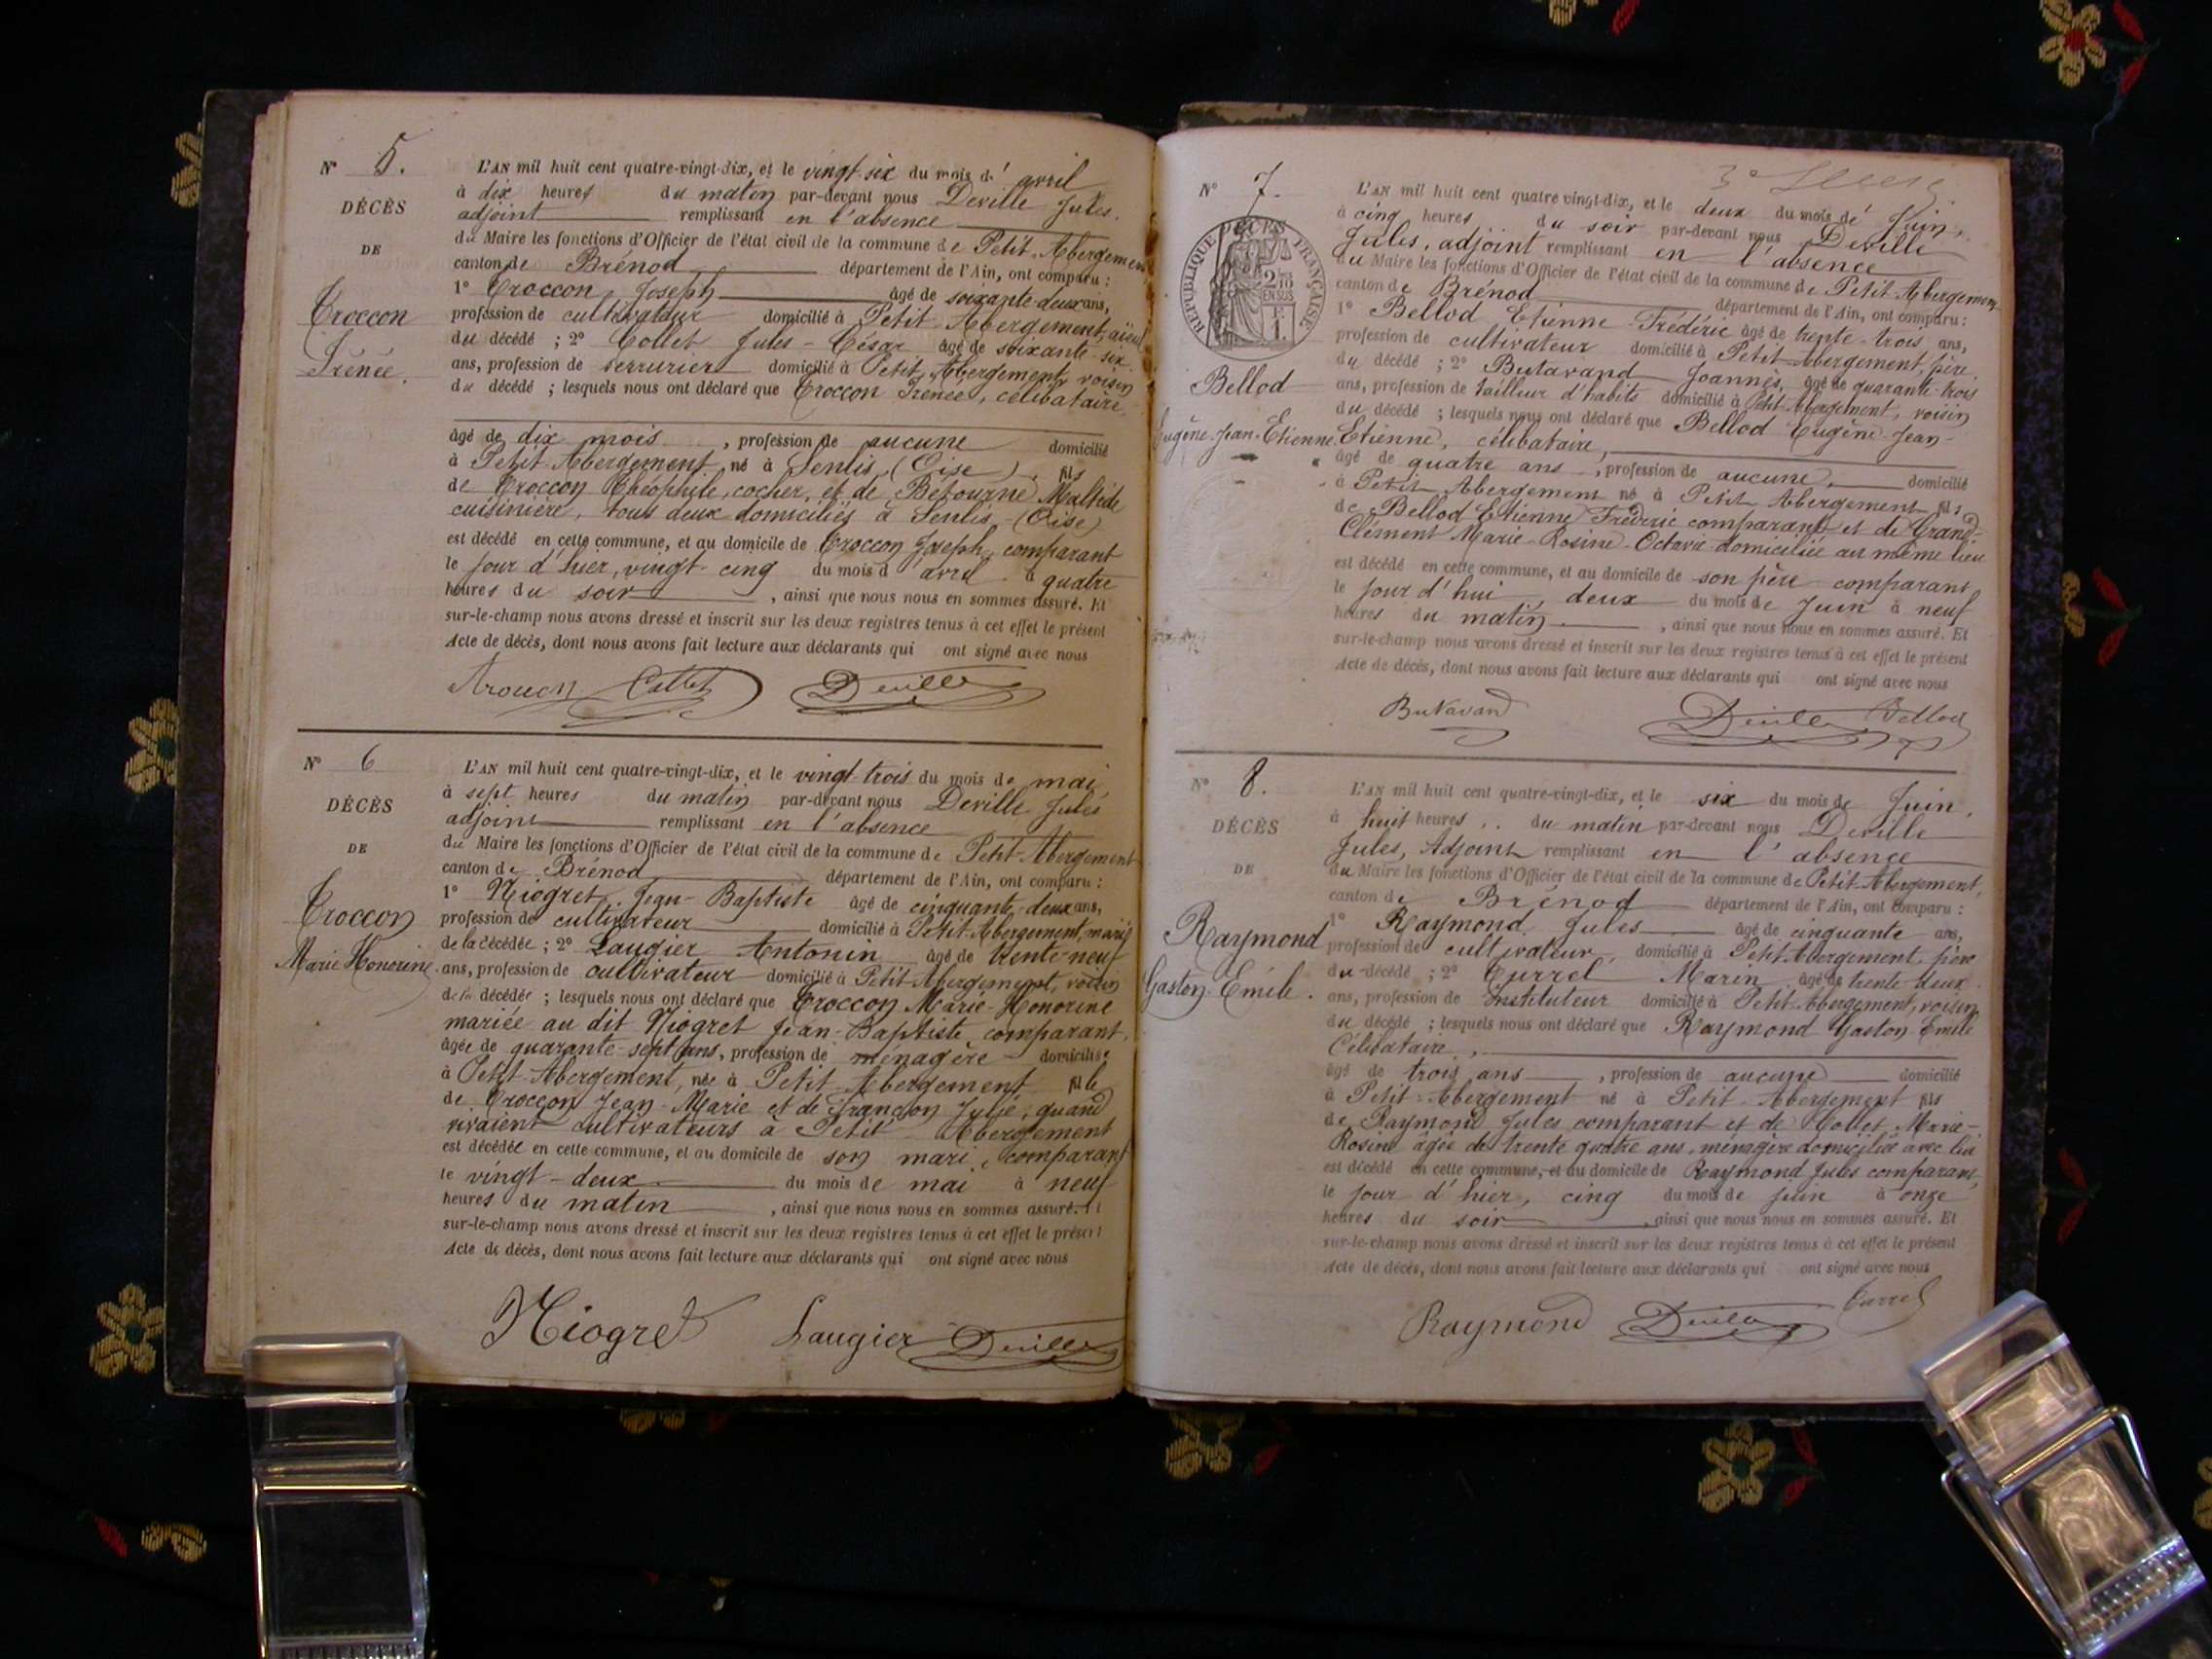 N° 5.
DÉCÈS
DE
Croccon
Irénée.
L'AN mil huit cent quatre-vingt-dix, et le vingt six du mois d' avril
à dix heures du matin par-devant nous Deville Jules.
adjoint remplissant en l'absence
du Maire les fonctions d'Officier de l'état civil de la commune de Petit-Abergement
canton de Brénod département de l'Ain, ont comparu :
1° Croccon, Joseph âgé de soixante deux ans,
profession de cultivateur domicilié à Petit-Abergement, aïeul
du décédé ; 2° Collet Jules-César âgé de soixante-six
ans, profession de serrurier domicilié à Petit Abergement, voisin
du décédé ; lesquels nous ont déclaré que Croccon Irénée, célibataire,
âgé de dix mois, profession de aucune domicilié
à Petit-Abergement né à Senlis (Oise), fils
de Croccon Théophile, cocher, et de Betourné Maltide
cuisinière, tous deux domiciliés à Senlis (Oise)
est décédé en cette commune, et au domicile de Croccon Joseph, comparant
le jour d'hier, vingt-cinq du mois d'avril à quatre
heures du soir, ainsi que nous nous en sommes assuré. Et
sur-le-champ nous avons dressé et inscrit sur les deux registres tenus à cet effet le présent
Acte de décès, dont nous avons fait lecture aux déclarants qui ont signé avec nous
Collet Deville
N° 6
DÉCÈS
DE
Croccon
Marie Honorine.
L'AN mil huit cent quatre-vingt-dix, et le vingt-trois du mois de mai
à sept heures du matin par-devant nous Deville Jules
adjoint remplissant en l'absence
du Maire les fonctions d'Officier de l'état civil de la commune de Petit-Abergement
canton de Brénod département de l'Ain, ont comparu :
1° Niogret, Jean-Baptiste âgé de cinquante-deux ans,
profession de cultivateur domicilié à Petit Abergement, mari
de la décédée ; 2° Laugier Antonin âgé de trente-neuf
ans, profession de cultivateur domicilié à Petit-Abergement, voisin
de la décédée ; lesquels nous ont déclaré que Croccon Marie-Honorine
mariée au dit Niogret Jean-Baptiste comparant,
âgée de quarante-sept ans, profession de ménagère domiciliée
à Petit-Abergement, née à Petit-Abergement fille
de Croccon Jean-Marie et de Françon Julie, quand
vivaient cultivateurs à Petit-Abergement
est décédée en cette commune, et au domicile de son mari, comparant
le vingt-deux du mois de mai à neuf
heures du matin, ainsi que nous nous en sommes assuré. Et
sur-le-champ nous avons dressé et inscrit sur les deux registres tenus à cet effet le présent
Acte de décès, dont nous avons fait lecture aux déclarants qui ont signé avec nous
Niogret Laugier Deville
N° 7.
RÉPUBLIQUE FRANÇAISE
2/10 EN SUS
Bellod
Eugène-Jean-Etienne
L'AN mil huit cent quatre vingt-dix, et le deux du mois de Juin,
à cinq heures du soir par-devant nous Deville
Jules, adjoint remplissant en l'absence
du Maire les fonctions d'Officier de l'état civil de la commune de Petit-Abergement
canton de Brénod département de l'Ain, ont comparu :
1° Bellod Etienne-Frédéric âgé de trente-trois ans,
profession de cultivateur domicilié à Petit-Abergement, père
du décédé ; 2° Butavand Joannès, âgé de quarante-trois
ans, profession de tailleur d'habits domicilié à Petit-Abergement, voisin
du décédé ; lesquels nous ont déclaré que Bellod Eugène-Jean-
Etienne, célibataire,
âgé de quatre ans, profession de aucune domicilié
à Petit Abergement né à Petit Abergement fils
de Bellod Etienne Frédéric comparant et de Grand-
Clément Marie-Rosine-Octavie domiciliée au même lieu
est décédé en cette commune, et au domicile de son père comparant
le jour d'hui, deux du mois de Juin à neuf
heures du matin, ainsi que nous nous en sommes assuré. Et
sur-le-champ nous avons dressé et inscrit sur les deux registres tenus à cet effet le présent
Acte de décès, dont nous avons fait lecture aux déclarants qui ont signé avec nous
Butavand Deville Bellod
N° 8.
DÉCÈS
DE
Raymond
Gaston-Emile.
L'AN mil huit cent quatre-vingt-dix, et le six du mois de Juin,
à huit heures du matin par-devant nous Deville
Jules, Adjoint remplissant en l'absence
du Maire les fonctions d'Officier de l'état civil de la commune de Petit-Abergement,
canton de Brénod département de l'Ain, ont comparu :
1° Raymond, Jules âgé de cinquante ans,
profession de cultivateur, domicilié à Petit Abergement, père
du décédé ; 2° Currel Marin âgé de trente deux
ans, profession de Instituteur domicilié à Petit Abergement, voisin
du décédé ; lesquels nous ont déclaré que Raymond Gaston-Emile
Célibataire,
âgé de trois ans, profession de aucune domicilié
à Petit-Abergement né à Petit-Abergement fils
de Raymond Jules comparant et de Collet Marie-
Rosine âgée de trente quatre ans, ménagère domiciliée avec lui
est décédé en cette commune, et au domicile de Raymond Jules comparant,
le jour d'hier, cinq du mois de juin à onze
heures du soir, ainsi que nous nous en sommes assuré. Et
sur-le-champ nous avons dressé et inscrit sur les deux registres tenus à cet effet le présent
Acte de décès, dont nous avons fait lecture aux déclarants qui ont signé avec nous
Raymond Deville Currel